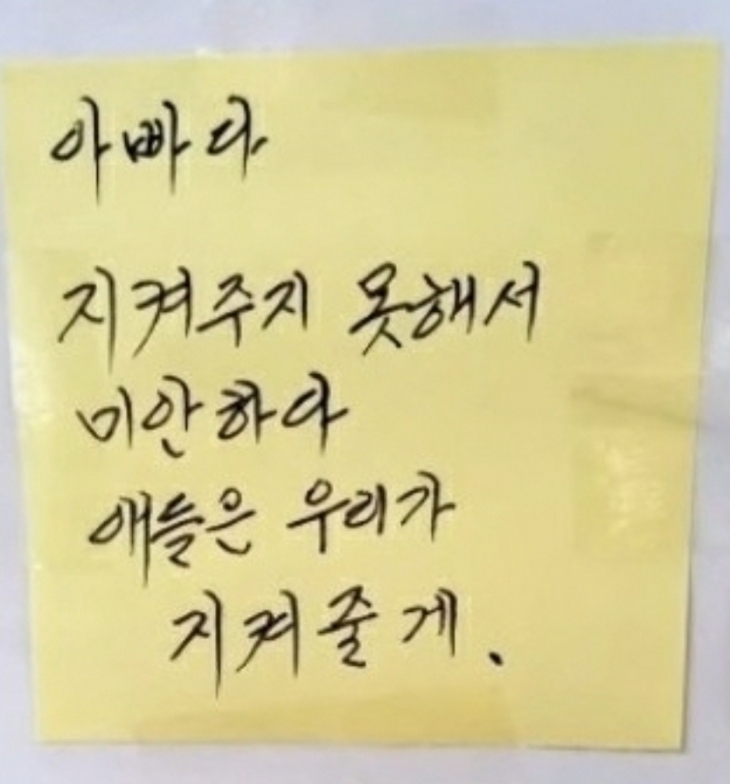 아빠다
지켜주지 못해서
미안하다
애들은 우리가
지켜줄게.